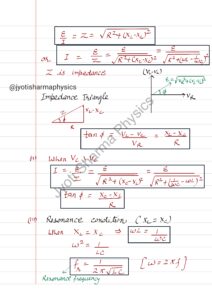 E/I = Z = √R²+(X_L-X_C)²
or I = E/Z = E/√R²+(X_L-X_C)² = E/√R²+(ωL-1/ωC)²
Z is impedance
(V_L-V_C)
@jyotisharmaphysics
Z=√R²+(X_L-X_C)²
V_R
Impedance Triangle
Z
X_L-X_C
ϕ
R
tan ϕ = V_L-V_C/V_R = X_L-X_C/R
When V_C > V_L
I = E/Z = E/√R²+(X_C-X_L)² = E/√R²+(1/ωC-ωL)²
tan ϕ = X_C-X_L/R
(iii) Resonance condition (X_L = X_C)
When X_L = X_C ⇒ ωL = 1/ωC
ω² = 1/LC
f_r = 1/2π√LC [ω = 2πf]
Resonance frequency
Jyoti Sharma Physics